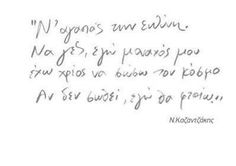 "Ν' αγαπάς την ευθύνη.
Να λες, εγώ μοναχός μου
έχω χρέος να σώσω τον κόσμο
Αν δεν σωθεί, εγώ θα φταίω..."
Ν.Καζαντζάκης